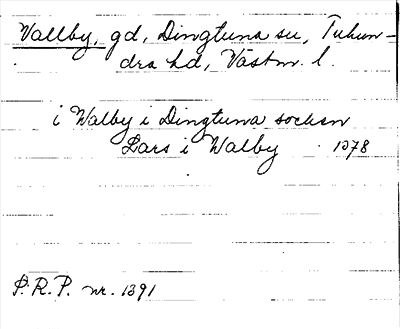 Wallby, gd, Dingtuna sn, Tuhun-
dra hd, Västm. l.
i Walby i Dingtuna sochen
Lars i Walby 1378
P.R.P. nr. 1391